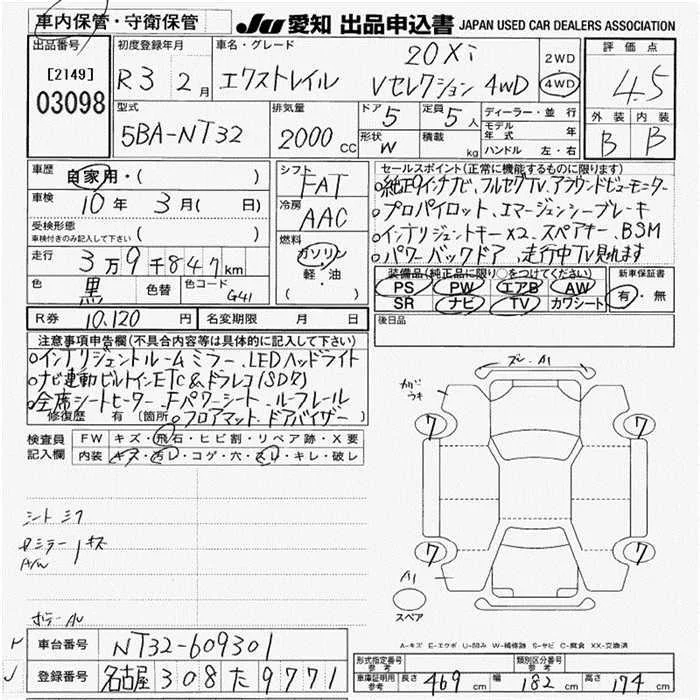 車内保管・守衛保管
JU 愛知 出品申込書 JAPAN USED CAR DEALERS ASSOCIATION
出品番号
[2149]
03098
初度登録年月
R3 2月
車名・グレード
エクストレイル
20Xi
Vセレクション 4WD
2WD
4WD
評価点
4.5
外装 内装
B B
型式
5BA-NT32
排気量
2000 CC
ドア 5
定員 5 人
形状 W
積載 kg
ディーラー・並行
モデル年式 年
ハンドル 左・右
車歴 自家用・( )
車検 10年 3月( 日)
受検形態
車検付きのみ記入して下さい ( )
走行 3万9千847km
色 黒 色替 色コード G41
シフト
FAT
冷房
AAC
燃料
ガソリン
軽・油
( )
セールスポイント(正常に機能するものに限ります)
○純正9インチナビ、フルセグTV、アラウンドビューモニター
○プロパイロット、エマージェンシーブレーキ
○インテリジェントキー×2、スペアキー、BSM
○パワーバックドア、走行中TV見れます
装備品(純正品に限り○をつけてください)
PS PW エアB AW
SR ナビ TV カワシート
新車保証書
有・無
R券 10,120 円 名変期限 月 日
後日品
注意事項申告欄(不具合内容等は具体的に記入して下さい)
○インテリジェントルームミラー、LEDヘッドライト
○ナビ連動ビルトインETC&ドラレコ(SD欠)
○全席シートヒーター、Fパワーシート、ルーフレール
修復歴 有(箇所 ○フロアマット、ドアバイザー )
検査員
記入欄
FW キズ・飛石・ヒビ割・リペア跡・X要
内装 キズ・汚レ・コゲ・穴・スレ・キレ・破レ
シート シワ
Rミラー キズ
A/W
ボデー AU
ズレ、A1
カバー
ウキ
7 7
7 7
A1
スペア
A-キズ E-エクボ U-凹み W-補修跡 S-サビ C-腐食 XX-交換済
H
J
車台番号 NT32-609301
登録番号 名古屋 308 た 9771
形式指定番号
参考
類別区分番号
参考
車庫証明用
参考
長さ 469 cm 幅 182 cm 高さ 174 cm